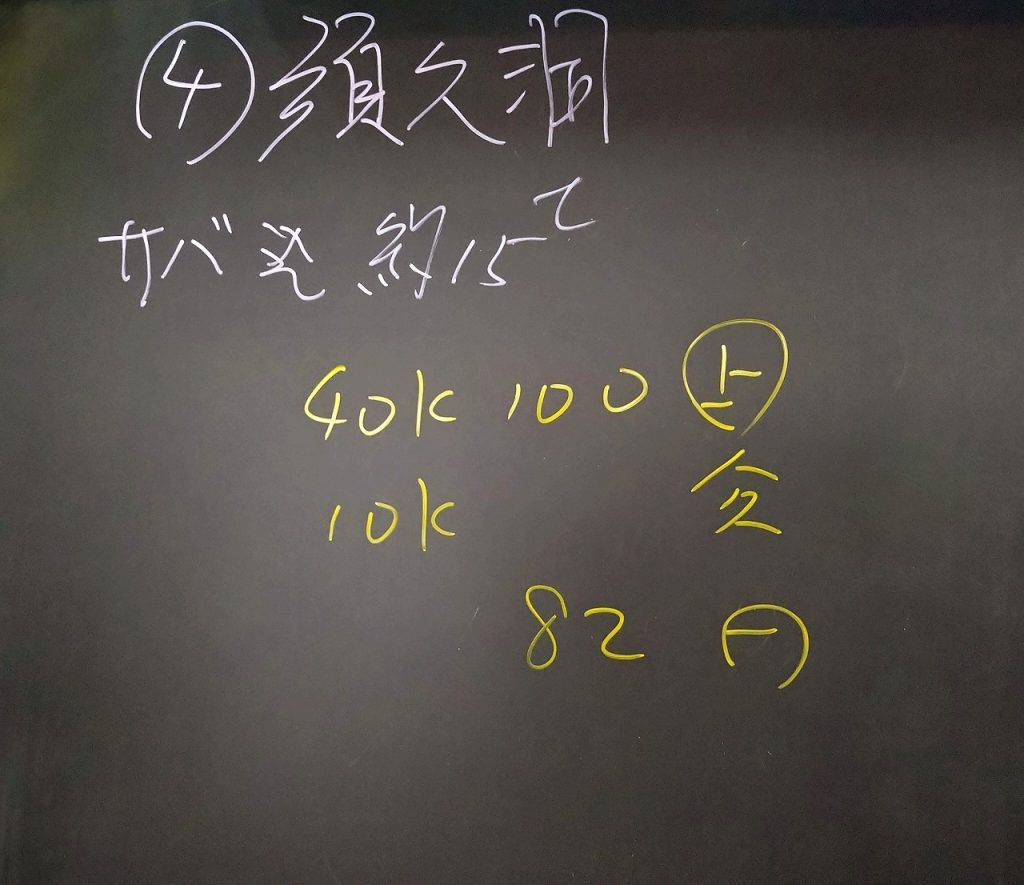 ④須久洞
サバ 約15
40K 100
10K
82